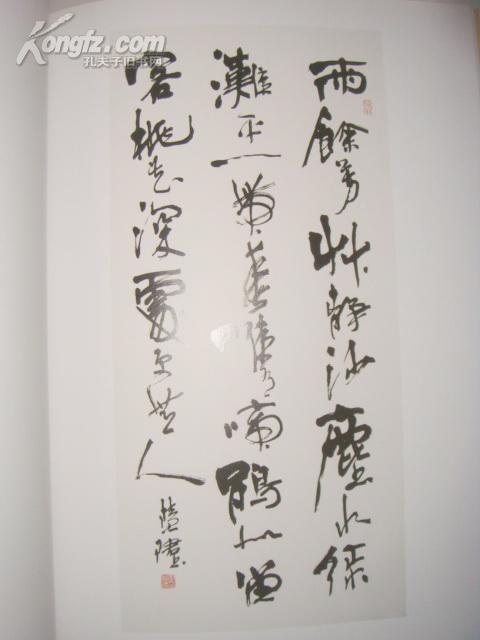 Kongfz.com
孔夫子旧书网
雨餘芳艸静沙塵水綠
灘平一帶春唯有啼鵑似留
客桃花深處更無人